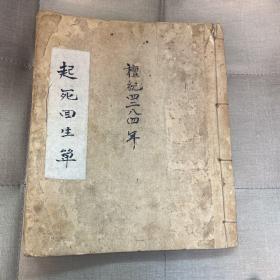 檀紀四二八四年
起死回生單